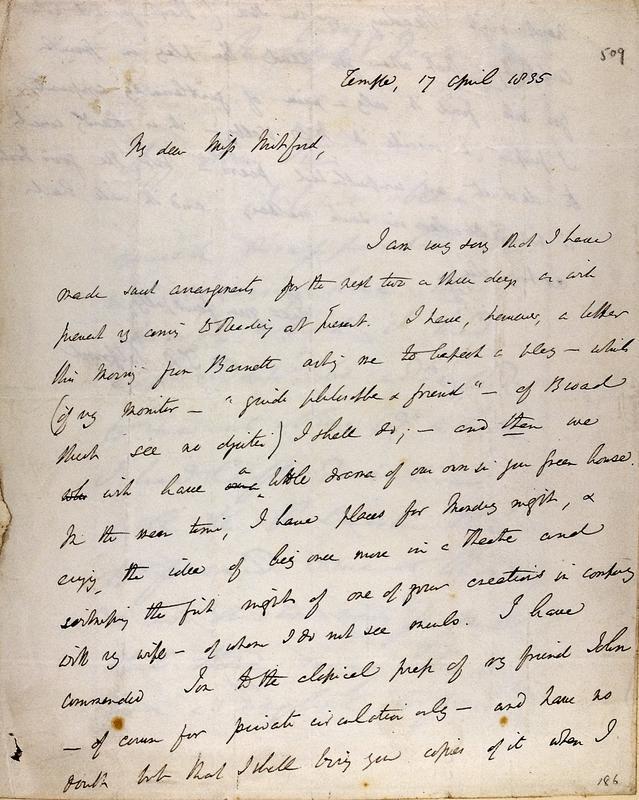 509
Temple, 17 April 1835
My dear Miss Mitford,
I am very sorry that I have
made such arrangements for the next two or three days as will
prevent my coming to Reading at present. I have, however, a letter
this morning from Barnett asking me to inspect a play — which
(if my monitor — "guide philosopher & friend" — of Broad
Street see no objection) I shall do; — and then we
who will have a little drama of our own in your green house.
In the mean time, I have places for Monday night, &
enjoy the idea of being once more in a Theatre and
witnessing the first night of one of your creations in company
with my wife — of whom I do not see much. I have
commended Ion to the classical press of my friend
— of course for private circulation only — and have no
doubt but that I shall bring you copies of it when I
186